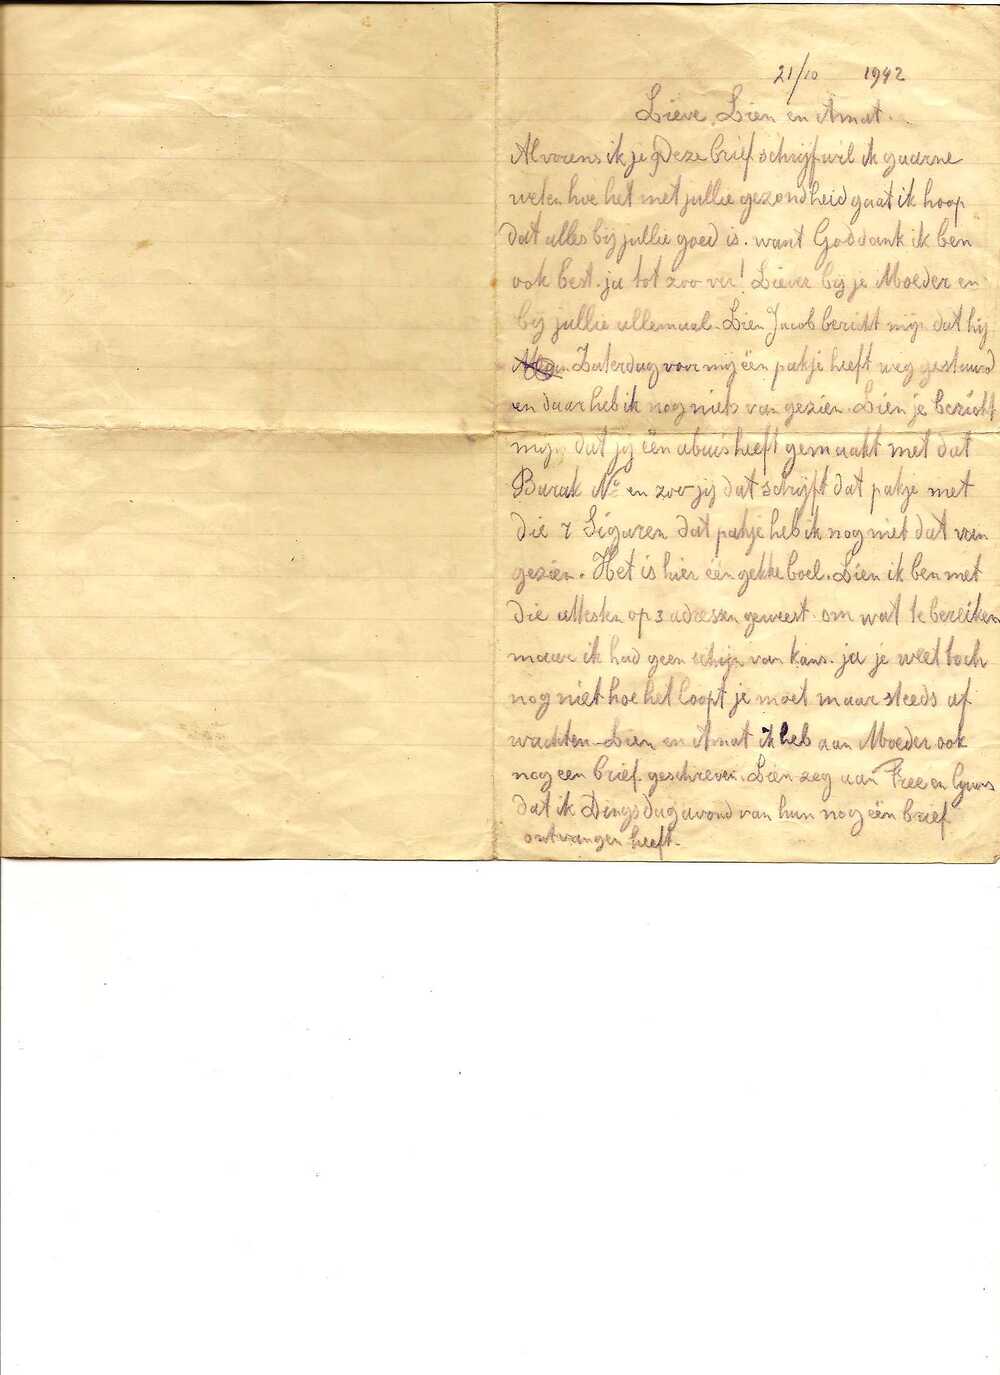 21/10 1942
Lieve Lien en Amat.
Alvorens ik je Deze brief schrijf wil ik gaarne
weten hoe het met jullie gezondheid gaat ik hoop
dat alles bij jullie goed is. want Goddank ik ben
ook best. ja tot zoo ver! Liever bij je Moeder en
bij jullie allemaal. Lien Jacob bericht mijn dat hij
Zaterdag voor mij ëen pakje heeft weg gestuurd
en daar heb ik nog niets van gezien. Lien je bericht
mijn dat jij ëen abuis heeft gemaakt met dat
Barak No en zoo jij dat schrijft dat pakje met
die 7 Sigaren dat pakje heb ik nog niet dat van
gezien. Het is hier ëen gekke boel. Lien ik ben met
die attesten op 3 adressen geweest om wat te bereiken
maar ik had geen schijn van kans. ja je weet toch
nog niet hoe het loopt je moet maar steeds af
wachten. Lien en Amat ik heb aan Moeder ook
nog een brief geschreven. Lien zeg aan Free en
dat ik Dingsdagavond van hun nog ëen brief
ontvangen heeft.